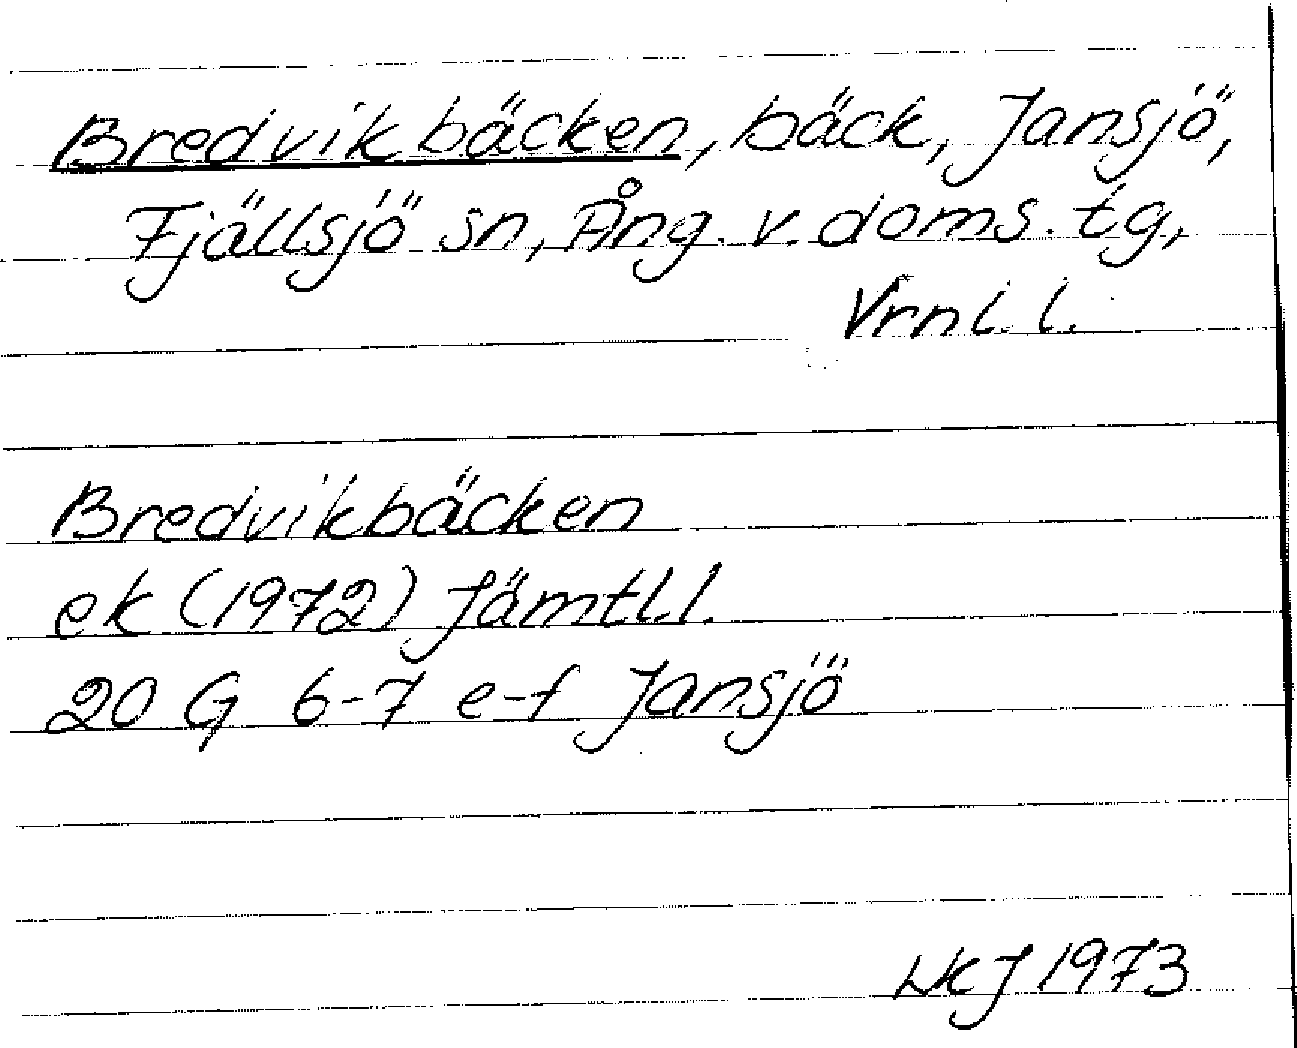 Bredvikbäcken, bäck, Jansjö,
Fjällsjö sn, Ång. v. doms. tg,
Vrnl. l.
Bredvikbäcken
ek (1972) Jämtl. l.
20 G 6-7 e-f Jansjö
LKJ 1973